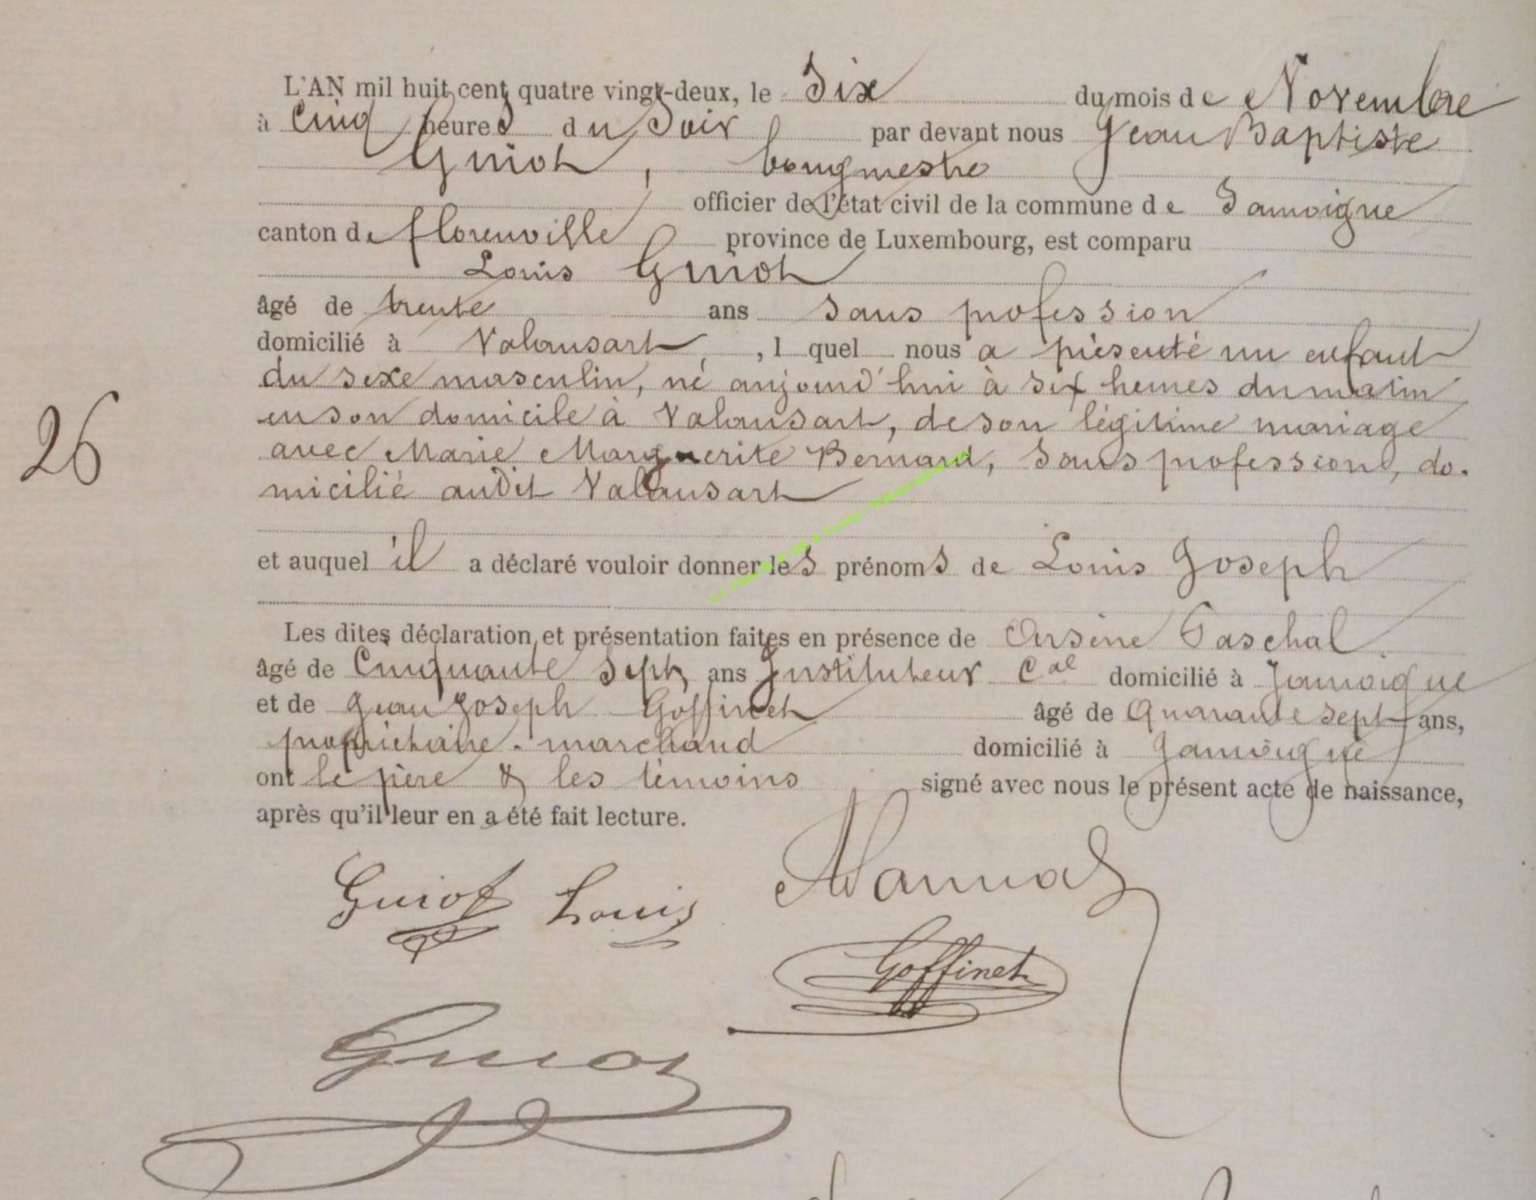 L'AN mil huit cent quatre vingt-deux, le Six du mois de Novembre
à Cinq heures du Soir par devant nous Jean Baptiste
Guiot, bougmestre
officier de l'état civil de la commune de Jamoigne
canton de florenville province de Luxembourg, est comparu
Louis Guiot
âgé de trente ans sans profession
domicilié à Valansart, , l quel nous a présenté un enfant
du sexe masculin, né aujourd'hui à six heures du matin
en son domicile à Valansart, de son légitime mariage
avec Marie Marguerite Bernard, sans profession, do-
micilié audit Valansart
26
et auquel il a déclaré vouloir donner les prénoms de Louis Joseph
Les dites déclaration et présentation faites en présence de Arsène Paschal
âgé de Cinquante sept ans Instituteur Cal domicilié à Jamoigne
et de Jean Joseph Goffinet âgé de Quarante sept ans,
propriétaire-marchand domicilié à Jamoigne
ont le père & les témoins signé avec nous le présent acte de naissance,
après qu'il leur en a été fait lecture.
Guiot Louis
Goffinet
Guiot